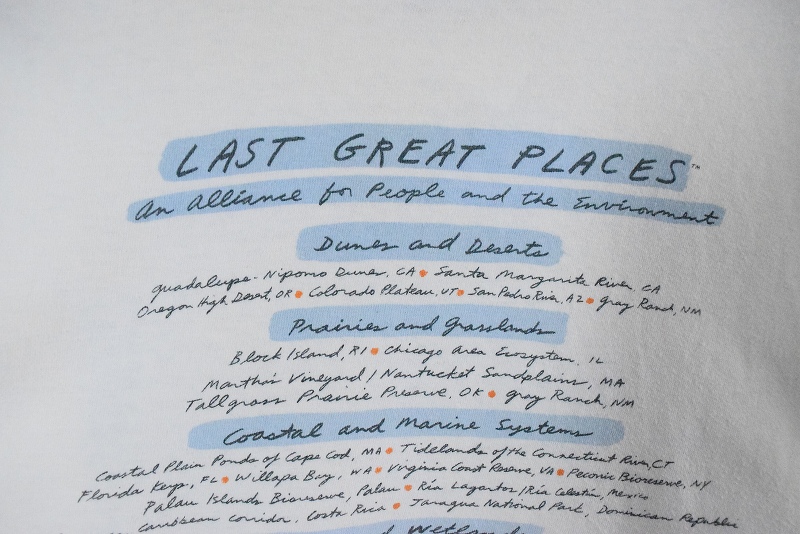 LAST GREAT PLACES™
An Alliance for People and the Environment
Dunes and Deserts
Guadalupe-Nipomo Dunes, CA • Santa Margarita River, CA
Oregon High Desert, OR • Colorado Plateau, UT • San Pedro River, AZ • Gray Ranch, NM
Prairies and Grasslands
Block Island, RI • Chicago Area Ecosystem, IL
Martha's Vineyard / Nantucket Sandplains, MA
Tallgrass Prairie Preserve, OK • Gray Ranch, NM
Coastal and Marine Systems
Coastal Plain Ponds of Cape Cod, MA • Tidelands of the Connecticut River, CT
Florida Keys, FL • Willapa Bay, WA • Virginia Coast Reserve, VA • Peconic Bioreserve, NY
Palau Islands Bioreserve, Palau • Ría Lagartos/Ría Celestún, Mexico
Caribbean Corridor, Costa Rica • Jaragua National Park, Dominican Republic